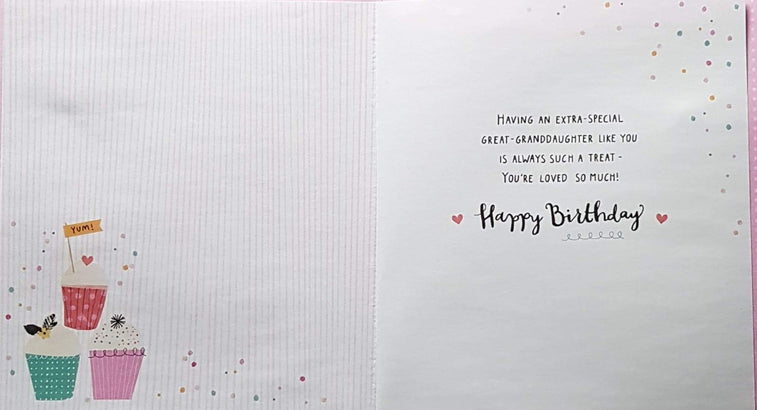 YUM!
HAVING AN EXTRA-SPECIAL
GREAT-GRANDDAUGHTER LIKE YOU
IS ALWAYS SUCH A TREAT -
YOU'RE LOVED SO MUCH!
Happy Birthday